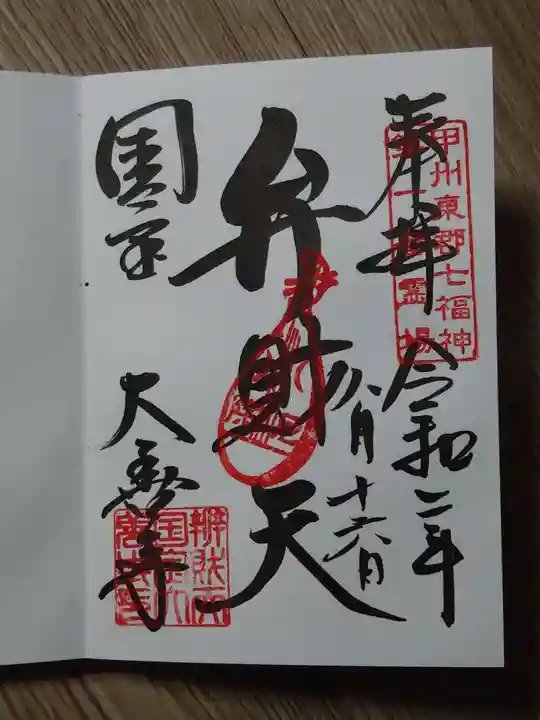 奉拝
甲州東郡七福神
霊場
令和二年
八月十六日
弁財天
国宝
大善寺